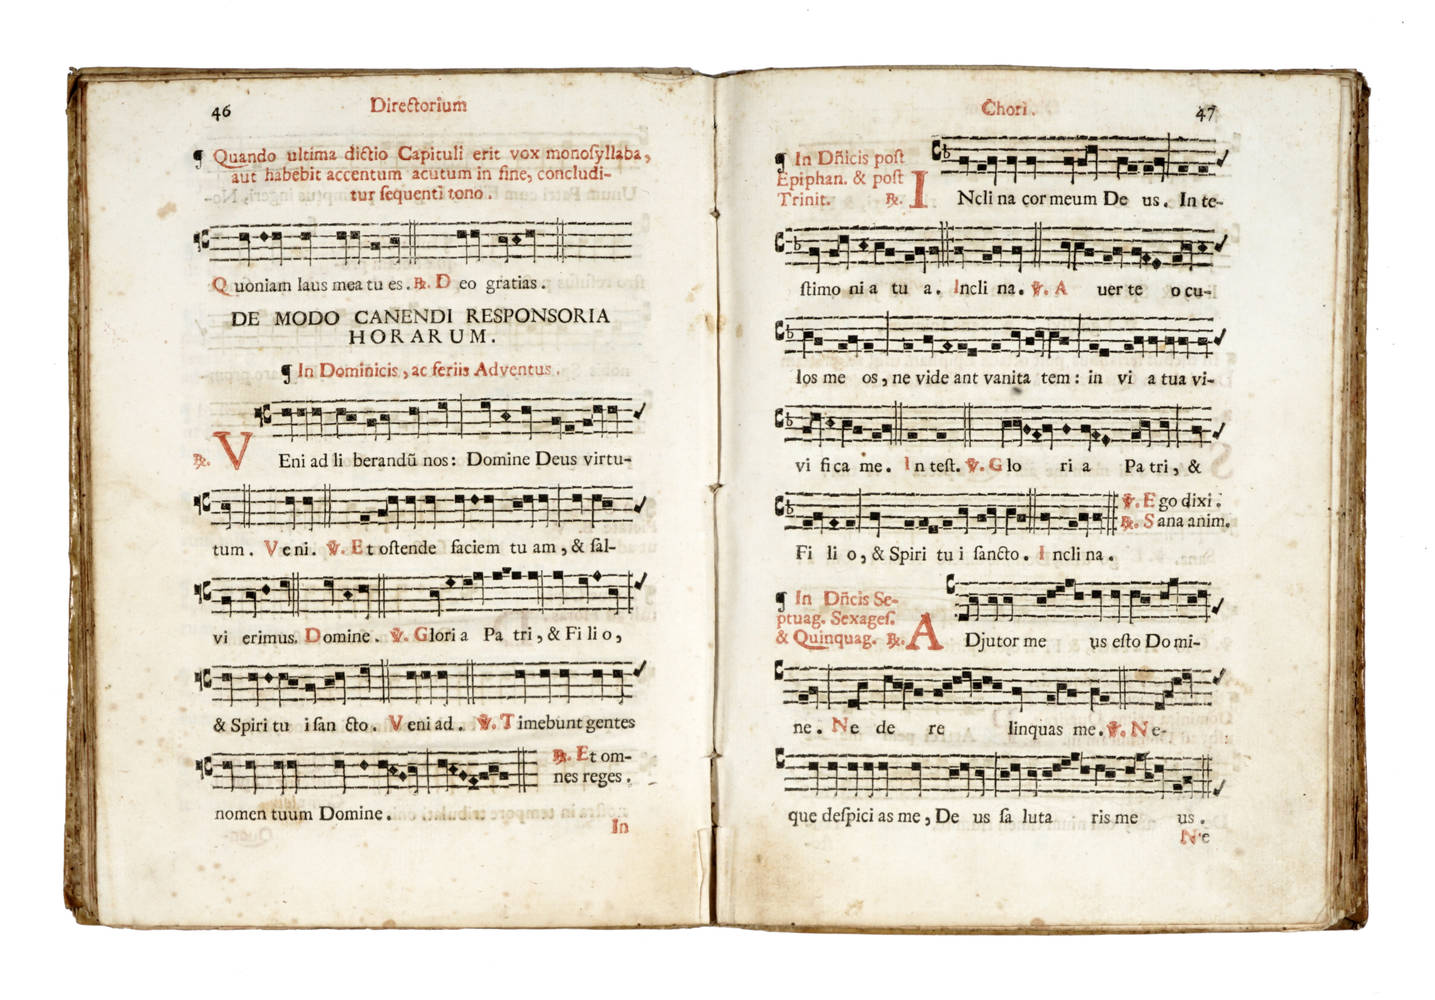 46
Directorium
¶ Quando ultima dictio Capituli erit vox monoſyllaba,
aut habebit accentum acutum in fine, concludi-
tur ſequenti tono.
Quoniam laus mea tu es. ℞. Deo gratias.
DE MODO CANENDI RESPONSORIA
HORARUM.
¶ In Dominicis, ac feriis Adventus.
℞. VEni ad li berandū nos: Domine Deus virtu-
tum. Veni. ℣. Et oſtende faciem tu am, & ſal-
vi erimus. Domine. ℣. Gloria Pa tri, & Fi li o,
& Spiri tu i ſan cto. Veni ad. ℣. Timebunt gentes
℞. Et om-
nes reges.
nomen tuum Domine.
In
Chori.
47
¶ In Dñicis poſt
Epiphan. & poſt
Trinit. ℞. INcli na cor meum De us. In te-
ſtimo ni a tu a. Incli na. ℣. A uer te o cu-
los me os, ne vide ant vanita tem: in vi a tua vi-
vi fi ca me. In teſt. ℣. Glo ri a Pa tri, &
℣. Ego dixi.
℞. Sana anim.
Fi li o, & Spiri tu i ſancto. Incli na.
¶ In Dñcis Se-
ptuag. Sexageſ.
& Quinquag. ℞. ADjutor me us eſto Do mi-
ne. Ne de re linquas me. ℣. Ne-
que deſpici as me, De us ſa luta ris me us.
Ne